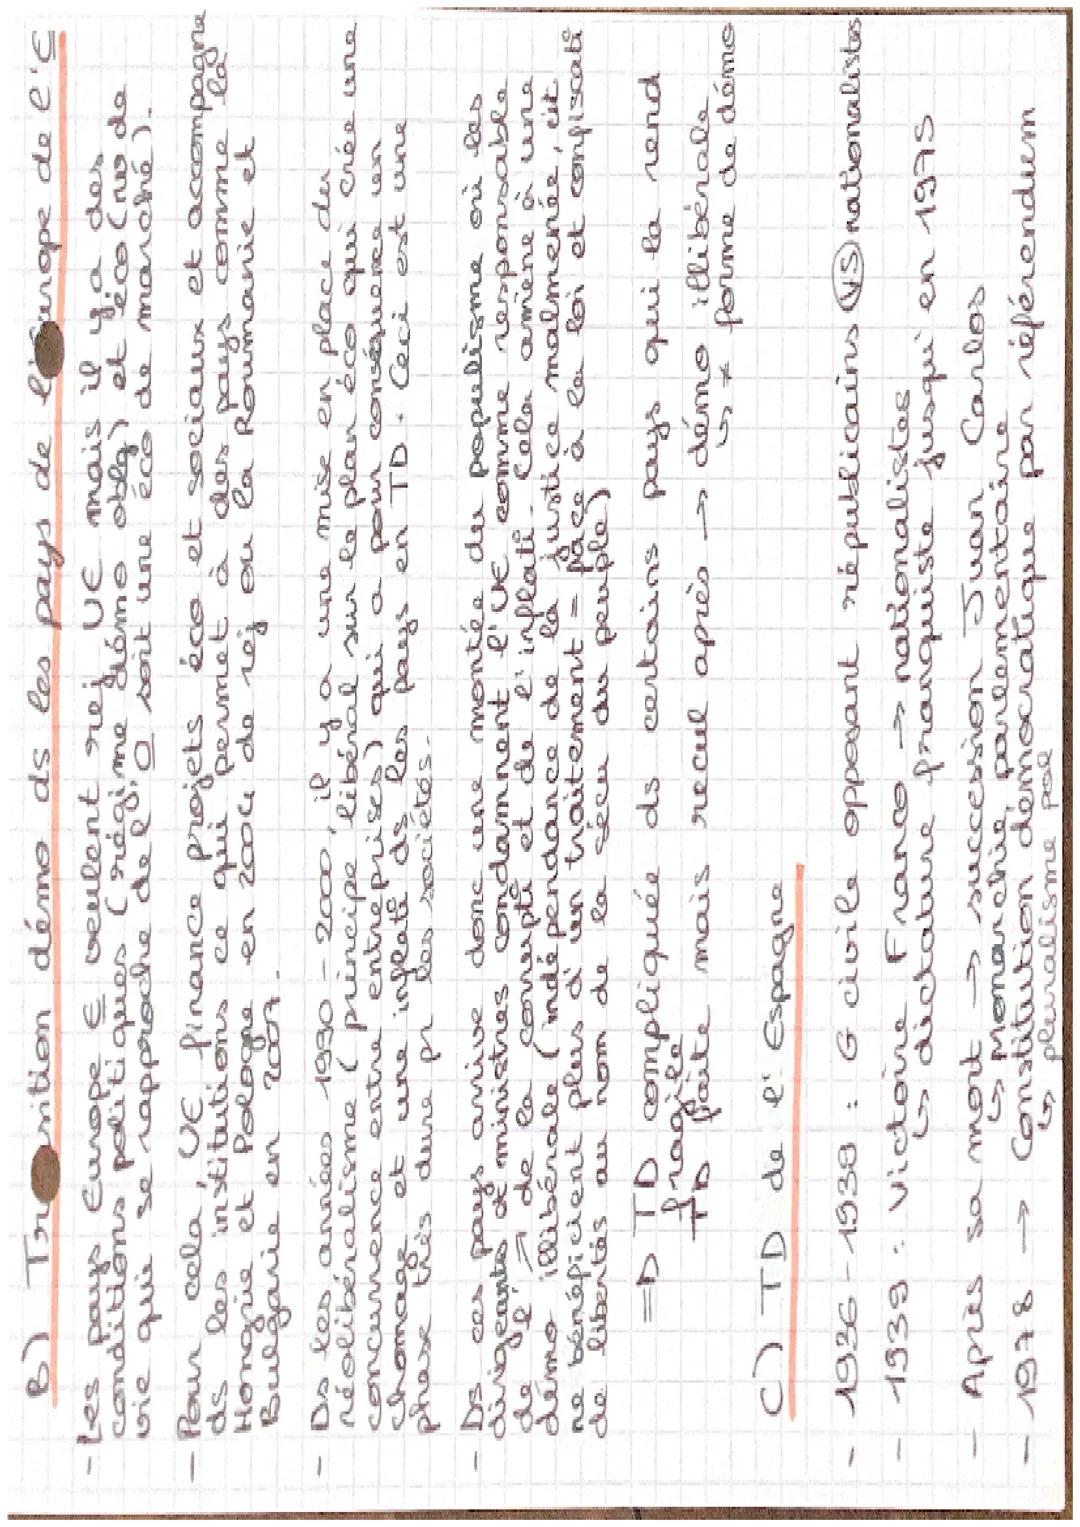 B) Transition démo ds les pays de l'Europe de l'E
- Les pays Europe E veulent rej UE mais il y a des
conditions politiques (régime démo oblg) et éco (niv de
vie qui se rapproche de l'O soit une éco de marché).
- Pour cela UE finance projets éco et sociaux et accompagne
ds les institutions ce qui permet à des pays comme la
Hongrie et Pologne en 2004 de rej ou la Roumanie et
Bulgarie en 2007.
- Ds les années 1990-2000, il y a une mise en place du
néolibéralisme (principe libéral sur le plan éco qui crée une
concurrence entre entreprises) qui a pour conséquence un
chomage et une inflati ds les pays en TD. Ceci est une
phase très dure pr les sociétés.
- Ds ces pays arrive donc une montée du populisme où les
dirigeants de ministres condamnent l'UE comme responsable
de l' ↗ de la corrupti et de l'inflati. Cela amène à une
démo illibérale (indépendance de la justice malmenée, cit
ne bénéficient plus d'un traitement = face à la loi et confiscati
de libertés au nom de la sécu du peuple)
=D TD compliquée ds certains pays qui la rend
fragile
TD faite mais recul après -> démo illibérale
↳ ≠ forme de démo
C) TD de l'Espagne
- 1936-1939 : G civile opposant républicains VS nationalistes
- 1939 : victoire Franco -> nationalistes
↳ dictature franquiste jusqu'en 1975
- Après sa mort -> succession Juan Carlos
↳ Monarchie parlementaire
- 1978 -> Constitution démocratique par référendum
↳ pluralisme pol